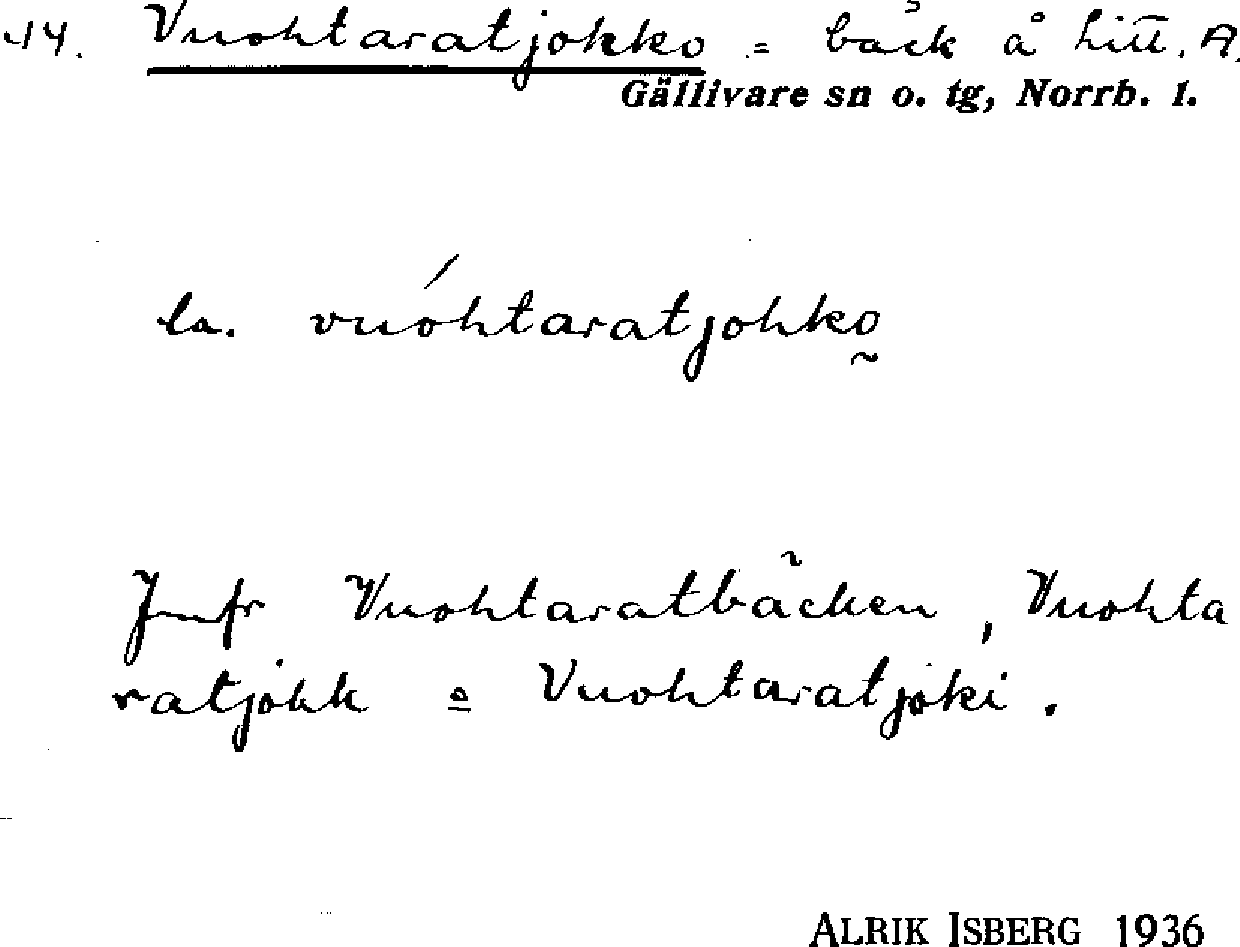 14. Vuohtaratjokko = bäck å litt. A.
Gällivare sn o. tg, Norrb. l.
la. vuóhtaratjohko̰
Jmfr Vuohtaratbäcken, Vuohta
ratjåkk o Vuohtaratjåki.
ALRIK ISBERG 1936